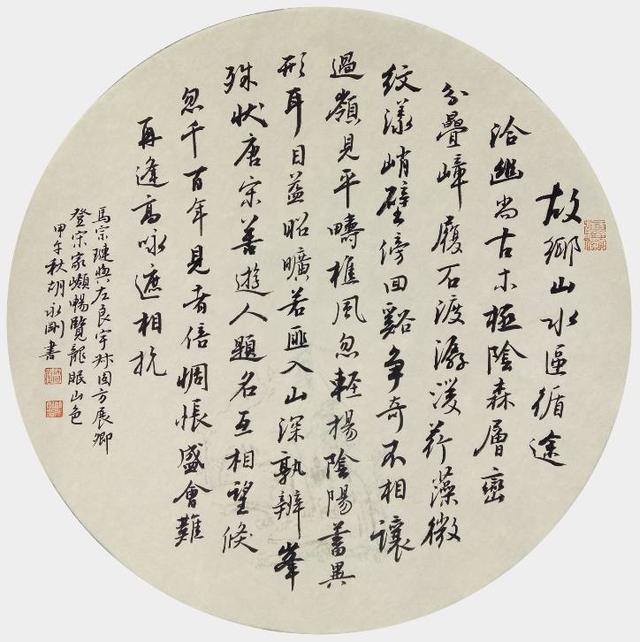 故鄉山水區循途
洽幽尚古木極陰森層巒
分疊嶂履石渡潺湲荇藻微
紋漾峭壁傍回谿爭奇不相讓
過嶺見平疇樵風忽輕揚陰陽蓄異
形耳目益昭曠若匪入山深孰辨峯
殊狀唐宋善遊人題名互相望倏
忽千百年見者倍惆悵盛會難
再逢高咏遮相抗
馬宗璉與左良宇林固方展卿
登宗家嶺暢覽龍眠山色
甲午秋胡永剛書